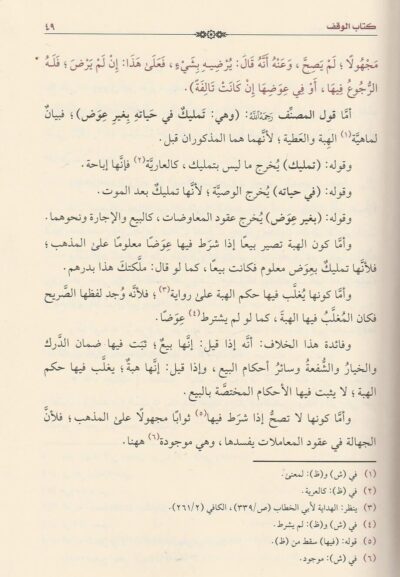 كتاب الوقف
٤٩
مَجْهُولًا؛ لَمْ يَصِحَّ، وَعَنْهُ أَنَّهُ قَالَ: يُرْضِيهِ بِشَيْءٍ، فَعَلَىٰ هَذَا: إِنْ لَمْ يَرْضَ؛ فَلَهُ
الرُّجُوعُ فِيهَا، أَوْ فِي عِوَضِهَا إِنْ كَانَتْ تَالِفَةً).
أمَّا قول المصنِّف رَحِمَهُ اللَّهُ: (وهي: تَمليكٌ في حَياتهِ بِغيرِ عِوَض)؛ فبيانٌ
لماهيَّة(١) الهبة والعَطية؛ لأنَّهما هما المذكوران قبل.
وقوله: (تمليك) يُخرج ما ليس بتمليك، كالعاريَّة(٢) فإنَّها إباحة.
وقوله: (في حياته) يُخرج الوصيَّة؛ لأنَّها تمليكٌ بعد الموت.
وقوله: (بغير عِوَض) يُخرج عقود المعاوضات، كالبيع والإجارة ونحوهما.
وأمَّا كون الهبة تصير بيعًا إذا شرَط فيها عِوَضًا معلومًا علىٰ المذهب؛
فلأنَّها تمليكٌ بعِوَض معلوم فكانت بيعًا، كما لو قال: ملَّكتكَ هذا بدرهم.
وأمَّا كونها يُغلَّب فيها حكم الهبة علىٰ رواية(٣)؛ فلأنَّه وُجد لفظها الصَّريح
فكان المُغلَّبُ فيها الهبةَ، كما لو لم يشترط(٤) عِوَضًا.
وفائدة هذا الخلاف: أنَّه إذا قيل: إنَّها بيعٌ؛ ثبَت فيها ضمان الدَّرك
والخيارُ والشُّفعةُ وسائرُ أحكام البيع، وإذا قيل: إنَّها هبةٌ؛ يغلَّب فيها حكم
الهبة؛ لا يثبت فيها الأحكام المختصَّة بالبيع.
وأمَّا كونها لا تصحُّ إذا شرَط فيها(٥) ثوابًا مجهولًا علىٰ المذهب؛ فلأنَّ
الجهالة في عقود المعاملات يفسدها، وهي موجودة(٦) ههنا.
(١) في (ش) و(ظ): لمعنىٰ.
(٢) في (ظ): كالعرية.
(٣) ينظر: الهداية لأبي الخطاب (ص/٣٣٩)، الكافي (٢/٢٦١).
(٤) في (ش) و(ظ): لم يشرط.
(٥) قوله: (فيها) سقط من (ظ).
(٦) في (ش): موجود.